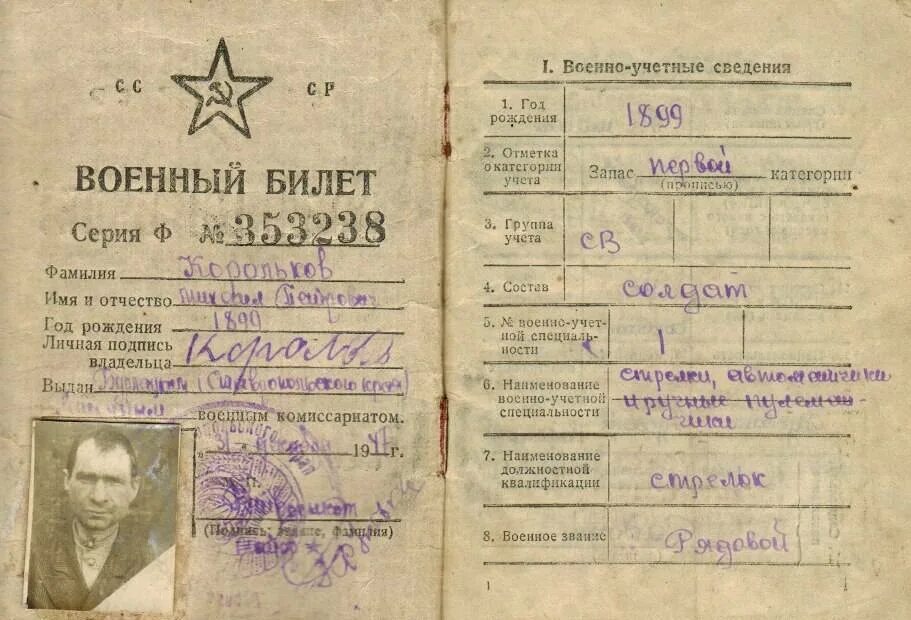 СС СР
ВОЕННЫЙ БИЛЕТ
Серия Ф № 353238
Фамилия Корольков
Имя и отчество Михаил Петрович
Год рождения 1899
Личная подпись
владельца
Выдан (Ставропольского края)
военным комиссариатом.
31 декабря 1947 г.
М.П.
(Подпись, звание, фамилия)
I. Военно-учетные сведения
1. Год
рождения 1899
2. Отметка
о категории
учета
Запас первой категории
(прописью)
3. Группа
учета СВ
4. Состав солдат
5. № военно-учет-
ной специаль-
ности 1
6. Наименование
военно-учетной
специальности
стрелки, автоматчики
и ручные пулемет-
чики
7. Наименование
должностной
квалификации
стрелок
8. Военное звание Рядовой
1 1